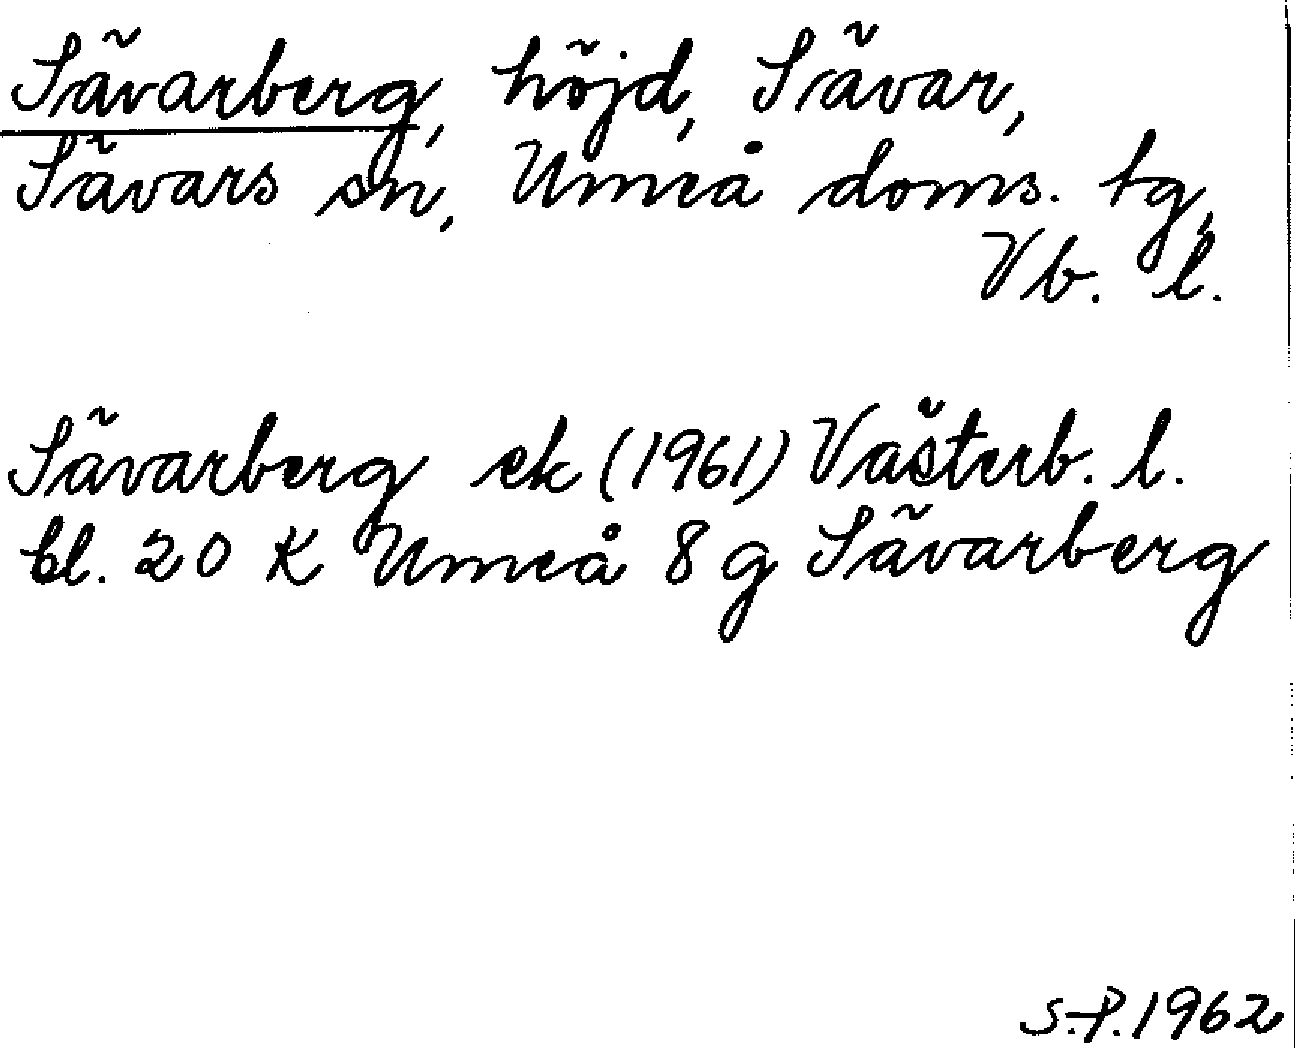 Sävarberg, höjd, Sävar,
Sävars sn, Umeå doms. tg,
Vb. l.
Sävarberg ek (1961) Västerb. l.
bl. 20 K Umeå 8 g Sävarberg
S.P. 1962